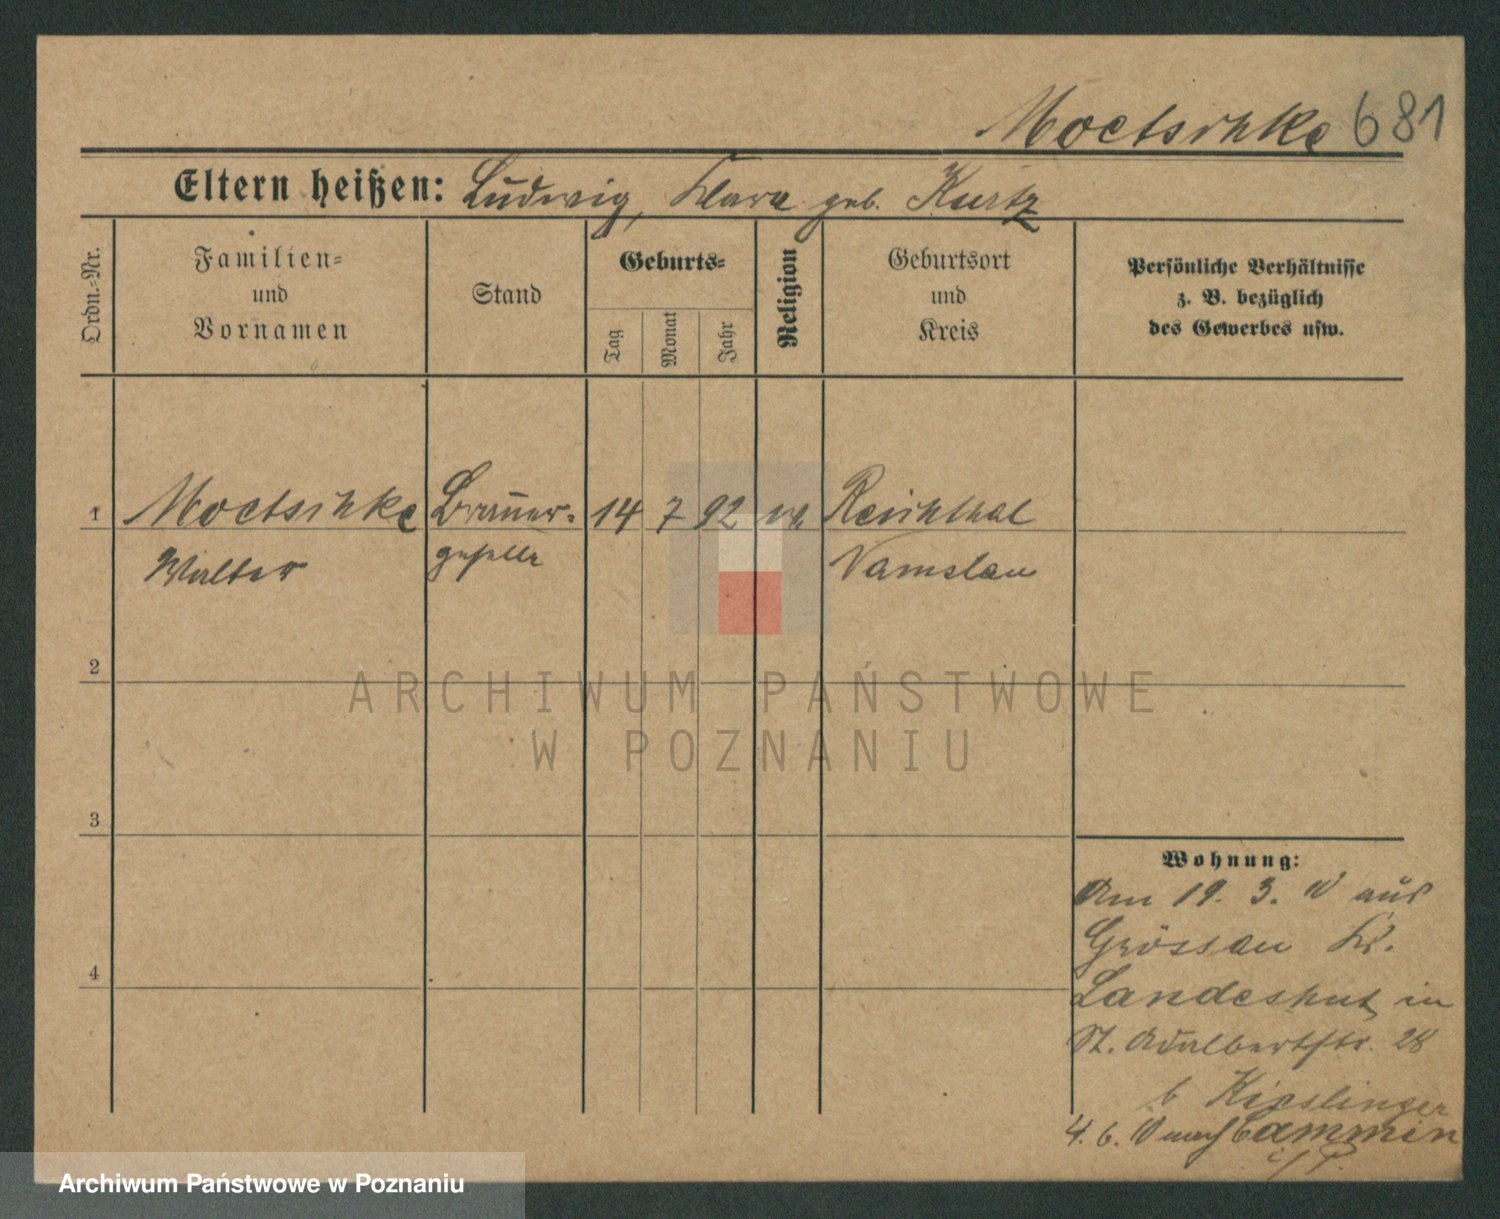 Moctsinke 681
Eltern heißen: Ludwig, Klara geb. Kurtz
Ordn.-Nr.
Familien-
und
Vornamen
Stand
Geburts-
Tag
Monat
Jahr
Religion
Geburtsort
und
Kreis
Persönliche Verhältnisse
z. B. bezüglich
des Gewerbes usw.
1 Moctsinke Brauer- 14 7 92 Reichthal
Walter geselle Namslau
2
3
4
Wohnung:
Am 19. 3. 10 aus
Grössau Kr.
Landeshut in
St. Adalbertstr. 28
b Kieslinger
4. 6. 10 nach Cammin
i/P.
ARCHIWUM PAŃSTWOWE
W POZNANIU
Archiwum Państwowe w Poznaniu